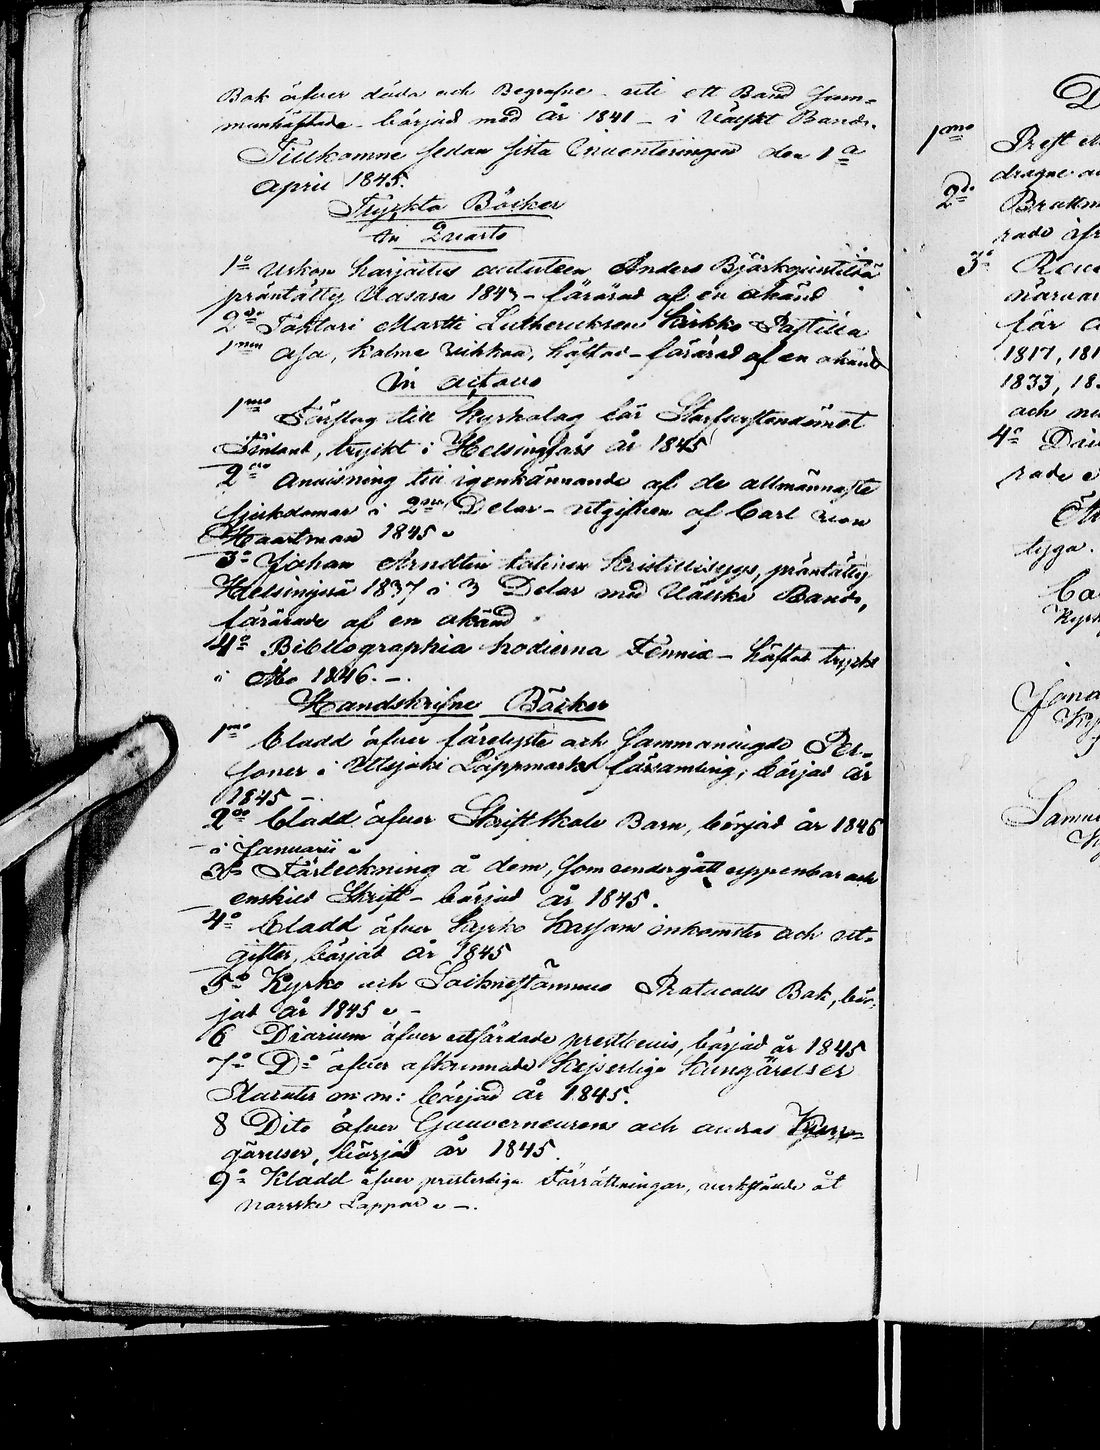 Bok öfver döda och Begrafne uti ett Band Sam=
manhäftade börjad med år 1841 - i Väskt Band.
Tillkomne sedan sista Inventeringen den 1a
April 1845.
Tryckta Böcker
in Quarto
1o Uskon harjoitus autuuteen Anders Björkqvistiltä
präntätty Vasasa 184 - förärad af en okänd
2do Tohtori Martti Lutheruksen Kirkko Postilla
1men Osa, kolme vihkoa, häftad - förärad af en okänd
in octavo
1mo Förslag till Kyrkolag för Storfurstendömet
Finland, tryckt i Helsingfors år 1845
2do Anvisning till igenkännande af de allmännaste
sjukdomar i 2ne Delar - utgifven af Carl von
Haartman 1845
3o Johan Arndtin totinen Kristillisyys, präntätty
Helsingisä 1837 i 3 Delar med Välska Band,
förärade af en okänd
4o Bibliographia hodierna Fennia - häftad tryckt
i Åbo 1846. -.
Handskrifne Böcker
1mo Cladd öfver förelyste och Sammanvigde Per=
soner i Utsjoki Lappmarks församling, börjad år
1845 -
2do Cladd öfver Skriftskole Barn, börjad år 1846
i Januarii
3o Förteckning å dem, som undergått uppenbar och
enskild Skrift - börjad år 1845.
4o Cladd öfver Kyrko Kassans inkomster och ut=
gifter, börjad år 1845
5o Kyrko och Socknestämmo Protocolls Bok, bör=
jad år 1845 -
6 Diarium öfver utfärdade prestbevis, börjad år 1845
7o Do öfver afkunnade Kejserliga Kungörelser
Placater m: m: börjad år 1845.
8 Dito öfver Gouverneurens och andras Kun=
görelser, börjad år 1845.
9o Kladd öfver presterliga Förrättningar, verkstälde åt
Norrske Lappar -.
1mo Prest
dragne
2do
3o
närvar
för
1817, 181
1833, 183
och
4o
rade
tyga.
Kyrk
Samu